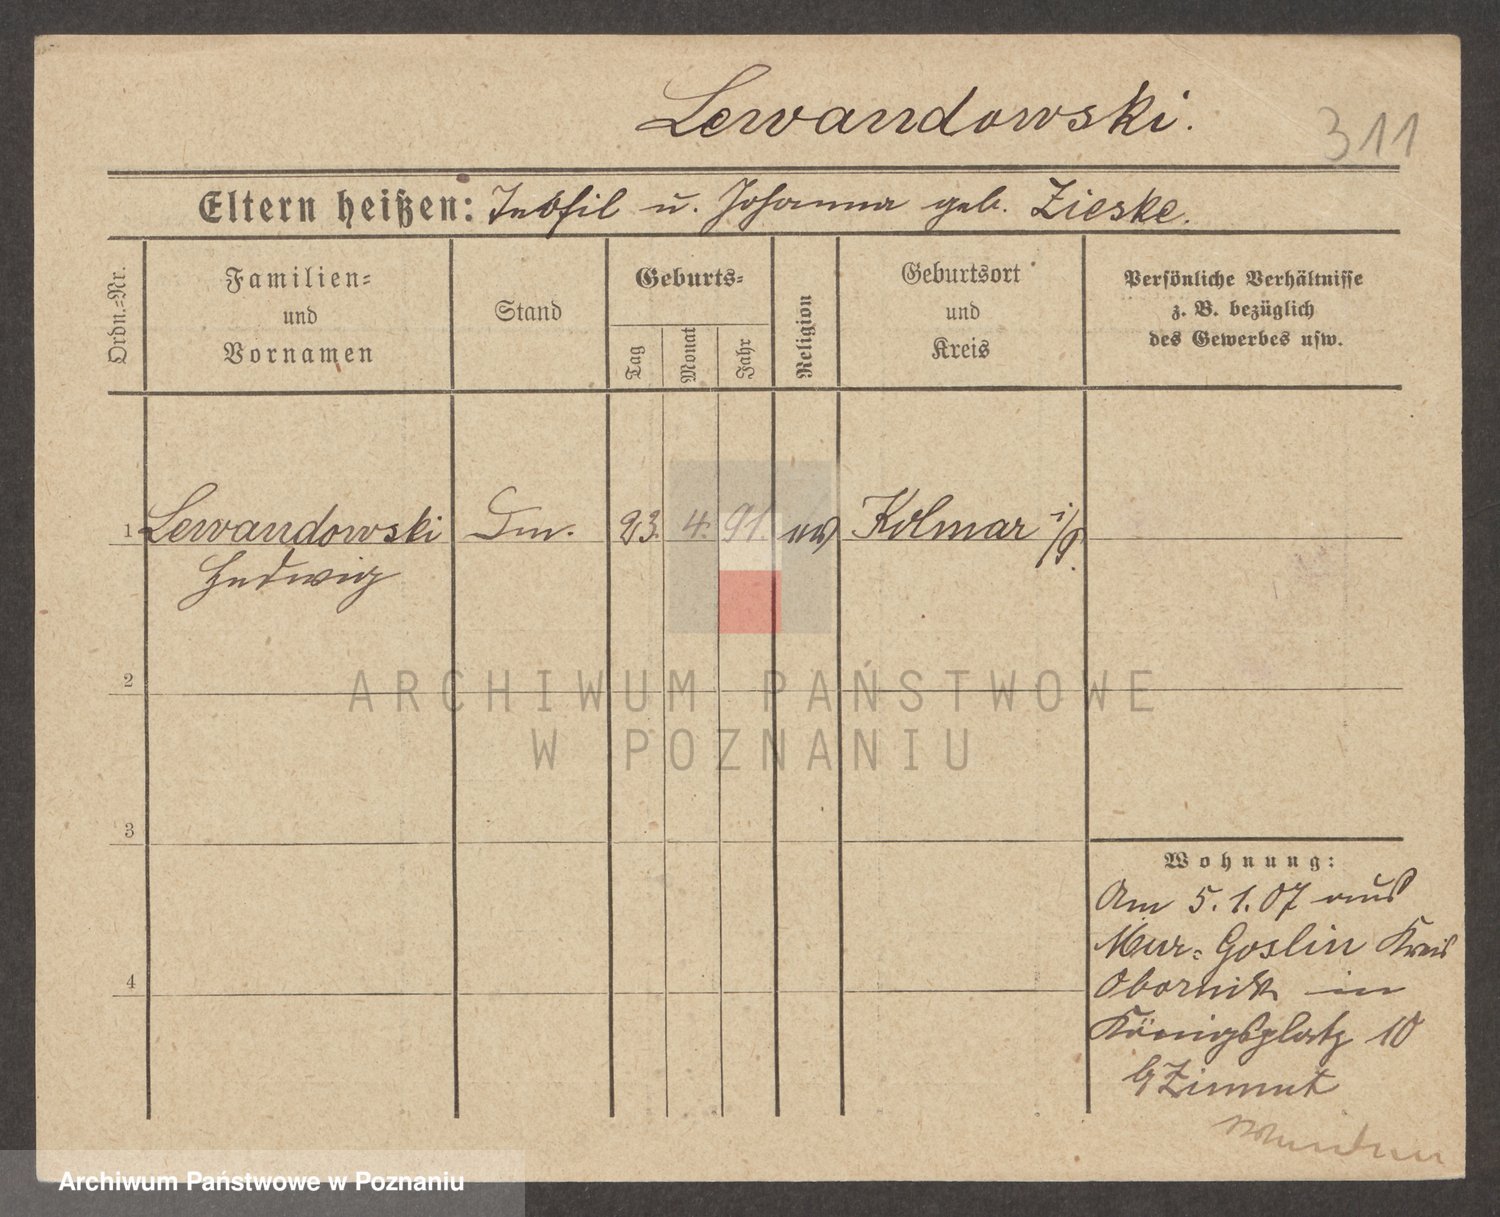 Lewandowski.
311
Eltern heißen: Teofil u. Johanna geb. Zieske.
Ordn.-Nr.
Familien-
und
Vornamen
Stand
Geburts-
Tag
Monat
Jahr
Religion
Geburtsort
und
Kreis
Persönliche Verhältnisse
z. B. bezüglich
des Gewerbes usw.
1 Lewandowski 23. 4. 91. ev Kolmar i/P.
Hedwig
2
3
4
Wohnung:
Am 5.1.07 aus
Mur-Goslin Kreis
Obornik in
Königsplatz 10
ARCHIWUM PAŃSTWOWE
W POZNANIU
Archiwum Państwowe w Poznaniu